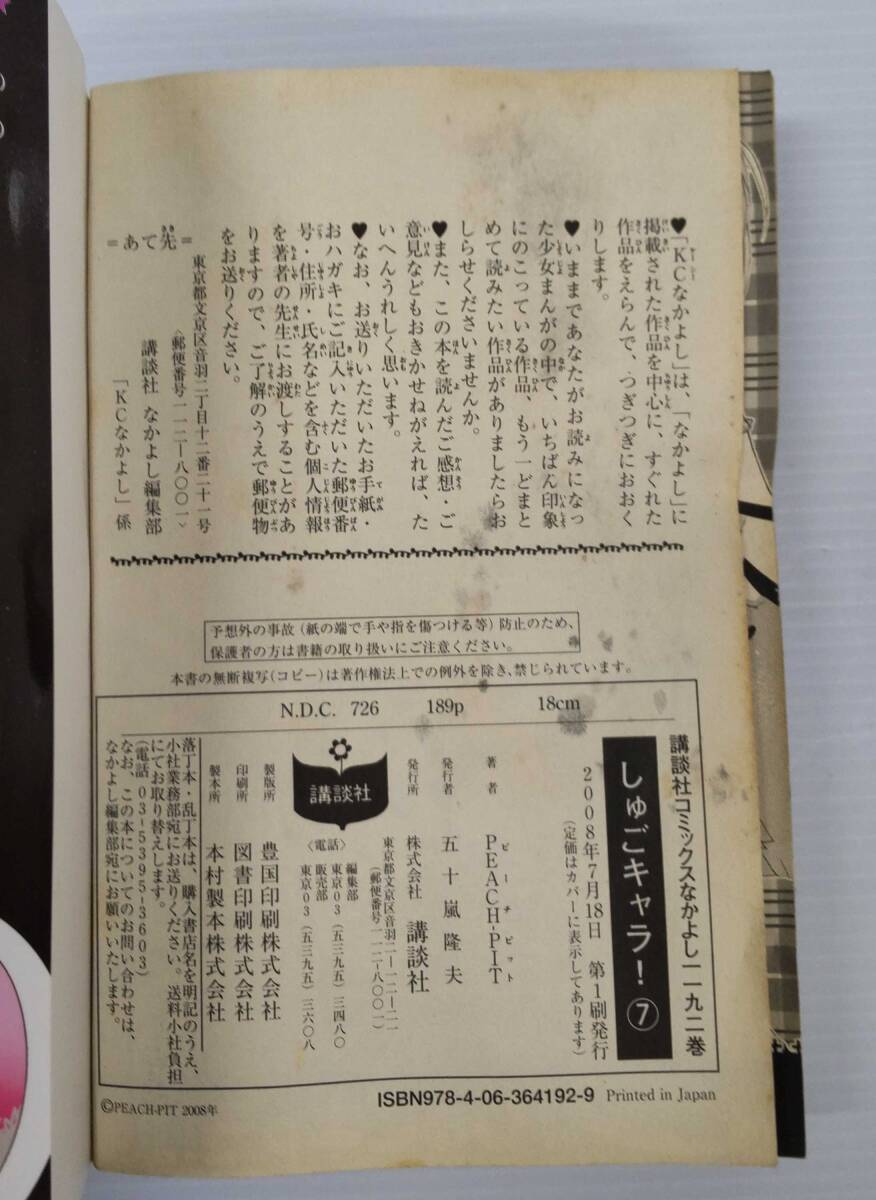 ♥「KCなかよし」は、「なかよし」に
掲載された作品を中心に、すぐれた
作品をえらんで、つぎつぎにおおく
りします。
♥いままであなたがお読みになっ
た少女まんがの中で、いちばん印象
にのこっている作品、もう一どまと
めて読みたい作品がありましたらお
しらせくださいませんか。
♥また、この本を読んだご感想・ご
意見などもおきかせねがえれば、た
いへんうれしく思います。
♥なお、お送りいただいたお手紙・
おハガキにご記入いただいた郵便番
号・住所・氏名などを含む個人情報
を著者の先生にお渡しすることがあ
りますので、ご了解のうえで郵便物
をお送りください。
=あて先=
東京都文京区音羽二丁目十二番二十一号
〈郵便番号一一二-八〇〇一〉
講談社 なかよし編集部
「KCなかよし」係
予想外の事故(紙の端で手や指を傷つける等)防止のため、
保護者の方は書籍の取り扱いにご注意ください。
本書の無断複写(コピー)は著作権法上での例外を除き、禁じられています。
N.D.C. 726 189p 18cm
講談社コミックスなかよし一一九二巻
しゅごキャラ! ⑦
2008年7月18日 第1刷発行
(定価はカバーに表示してあります)
著者 PEACH-PIT
ピーチピット
発行者 五十嵐隆夫
発行所 株式会社 講談社
東京都文京区音羽二-一二-二一
(郵便番号一一二-八〇〇一)
〈電話〉
編集部 東京03(五三九五)三四八〇
販売部 東京03(五三九五)三六〇八
講談社
製版所 豊国印刷株式会社
印刷所 図書印刷株式会社
製本所 本村製本株式会社
落丁本・乱丁本は、購入書店名を明記のうえ、
小社業務部宛にお送りください。送料小社負担
にてお取り替えします。
(電話 03-5395-3603)
なお、この本についてのお問い合わせは、
なかよし編集部宛にお願いいたします。
ISBN978-4-06-364192-9 Printed in Japan
©PEACH-PIT 2008年